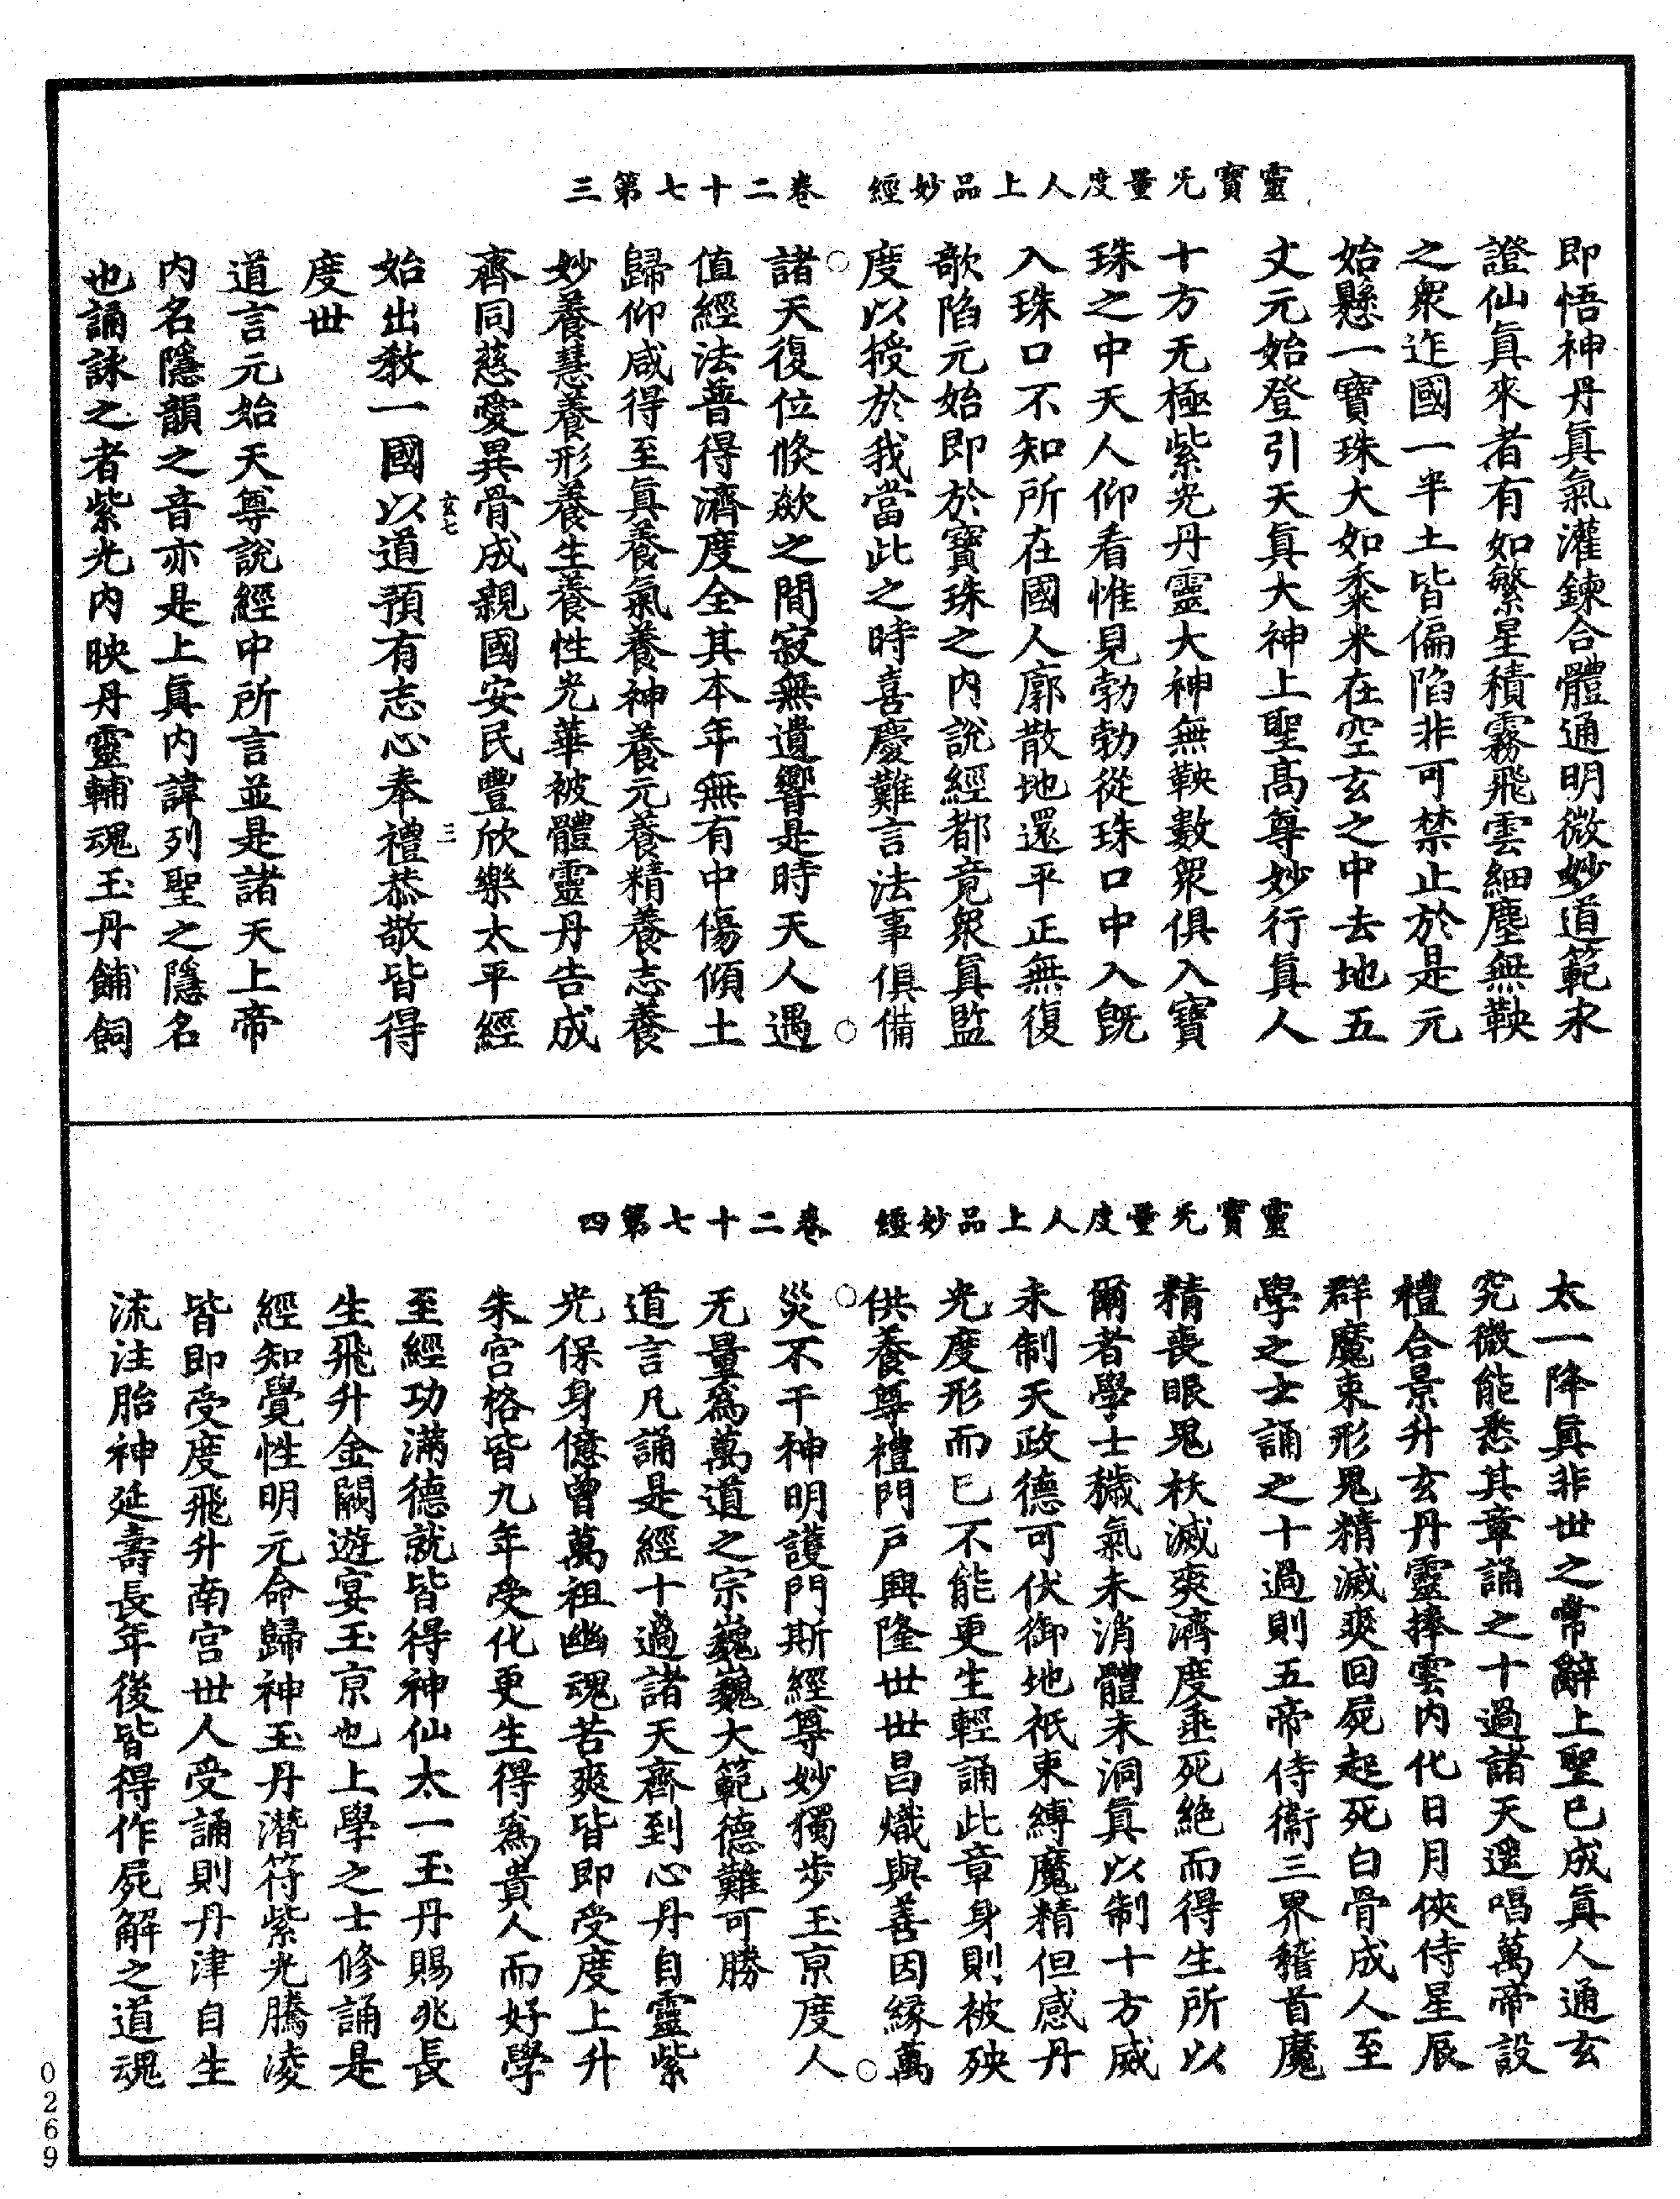 靈寶旡量度人上品妙經　卷二十七第三
即悟神丹真氣灌鍊合體通明微妙道範求
證仙真來者有如繁星積霧飛雲細塵無鞅
之衆迮國一半土皆偏陷非可禁止於是元
始懸一寶珠大如黍米在空玄之中去地五
丈元始登引天真大神上聖高尊妙行真人
十方无極紫光丹靈大神無鞅數衆俱入寶
珠之中天人仰看惟見勃勃從珠口中入既
入珠口不知所在國人廓散地還平正無復
欹陷元始即於寶珠之内說經都竟衆真監
度以授於我當此之時喜慶難言法事俱備
諸天復位倐欻之間寂無遺響是時天人遇
值經法普得濟度全其本年無有中傷傾土
歸仰咸得至真養氣養神養元養精養志養
妙養慧養形養生養性光華被體靈丹告成
齊同慈愛異骨成親國安民豐欣樂太平經
玄七　三
始出教一國以道預有志心奉禮恭敬皆得
度世
道言元始天尊說經中所言並是諸天上帝
内名隱韻之音亦是上真内諱列聖之隱名
也誦詠之者紫光内映丹靈輔魂玉丹餔飼
靈寶旡量度人上品妙經　卷二十七第四
太一降真非世之常辭上聖已成真人通玄
究微能悉其章誦之十過諸天遥唱萬帝設
禮合景升玄丹靈捧雲内化日月俠侍星辰
群魔束形鬼精滅爽回屍起死白骨成人至
學之士誦之十過則五帝侍衛三界稽首魔
精喪眼鬼祅滅爽濟度垂死絶而得生所以
爾者學士穢氣未消體未洞真以制十方威
未制天政德可伏御地祇束縛魔精但感丹
光度形而已不能更生輕誦此章身則被殃
供養尊禮門户興隆世世昌熾與善因緣萬
災不干神明護門斯經尊妙獨步玉京度人
无量爲萬道之宗巍巍大範德難可勝
道言凡誦是經十過諸天齊到心丹自靈紫
光保身億曾萬祖幽魂苦爽皆即受度上升
朱宫格皆九年受化更生得爲貴人而好學
至經功滿德就皆得神仙太一玉丹賜兆長
生飛升金闕遊宴玉京也上學之士修誦是
經知覺性明元命歸神玉丹潛符紫光騰淩
皆即受度飛升南宫世人受誦則丹津自生
流注胎神延壽長年後皆得作屍解之道魂
0269